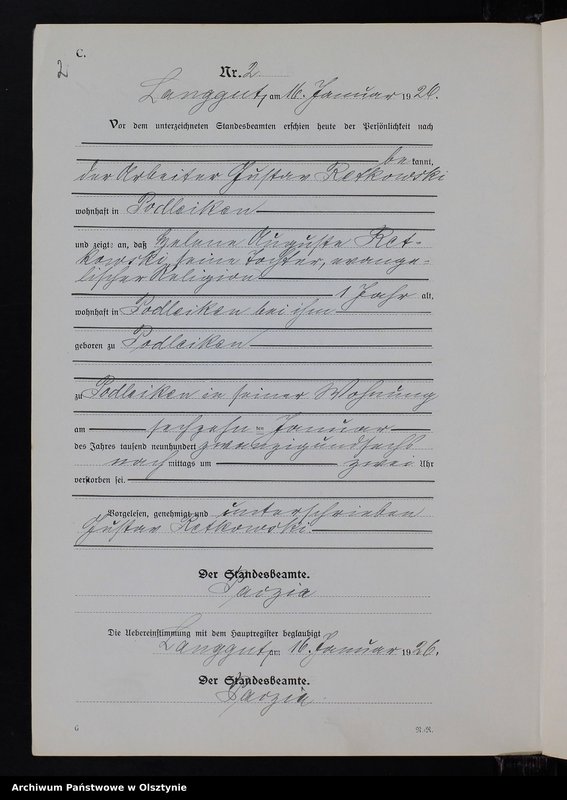 C.
2
Nr. 2.
Langgut, am 16. Januar 1926.
Vor dem unterzeichneten Standesbeamten erschien heute der Persönlichkeit nach
be kannt,
der Arbeiter Gustav Retkowski
wohnhaft in Podleiken
und zeigte an, daß Helene Auguste Ret-
kowski, seine Tochter, evange-
lischer Religion
1 Jahr alt,
wohnhaft in Podleiken bei ihm
geboren zu Podleiken
zu Podleiken in seiner Wohnung
am sechzehn ten Januar
des Jahres tausend neunhundert zwanzigundsechs
nach mittags um zwei Uhr
verstorben sei.
Vorgelesen, genehmigt und unterschrieben
Gustav Retkowski
Der Standesbeamte.
Die Uebereinstimmung mit dem Hauptregister beglaubigt
Langgut, am 16. Januar 1926.
Der Standesbeamte.
6
N.-N.
Archiwum Państwowe w Olsztynie